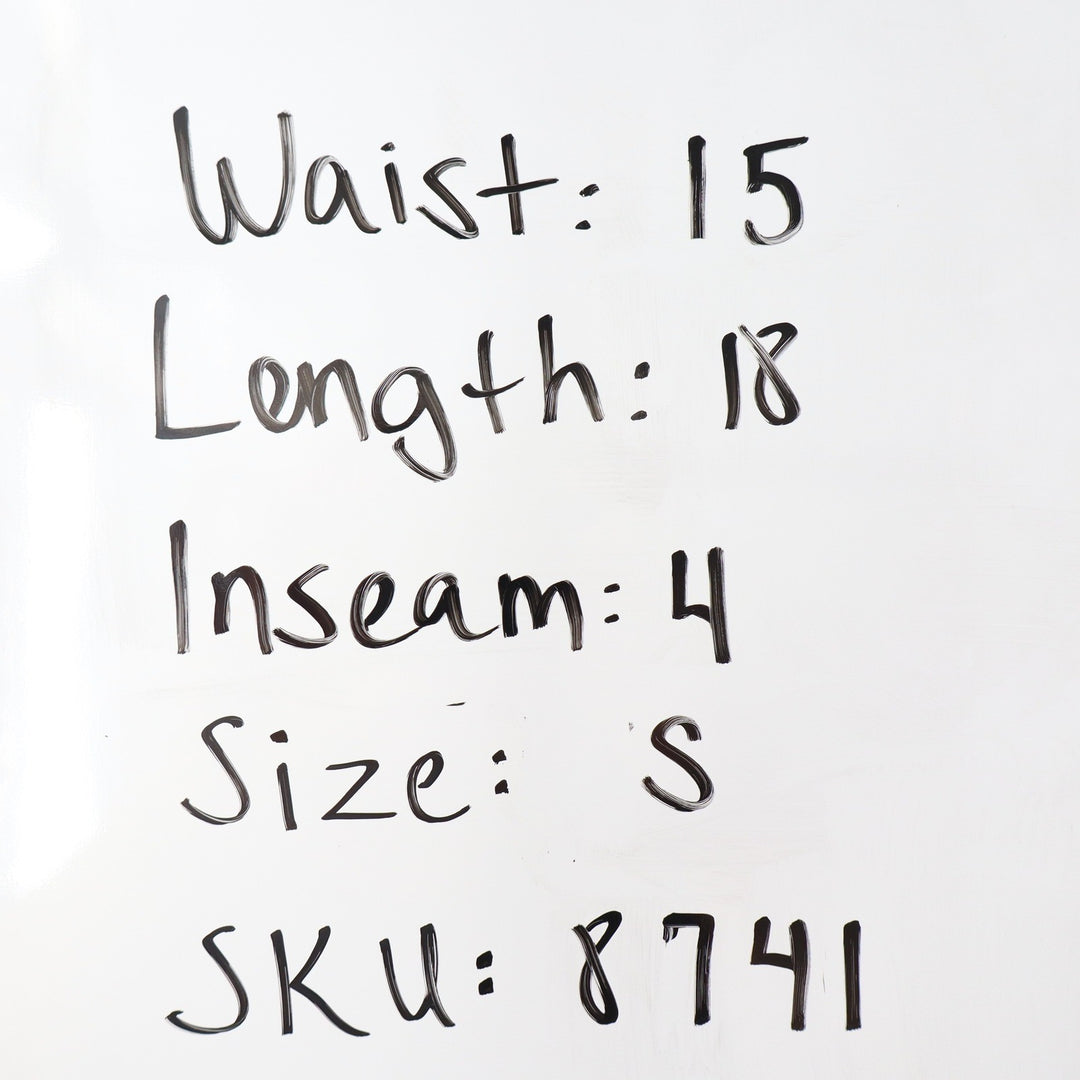 Waist: 15
Length: 18
Inseam: 4
Size: S
SKU: 8741